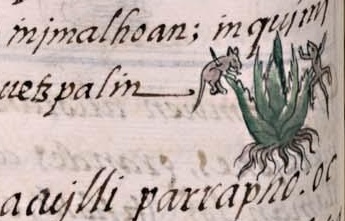 injmalhoan; in qujnj
uetzpalin
acujlli parrapho. oc